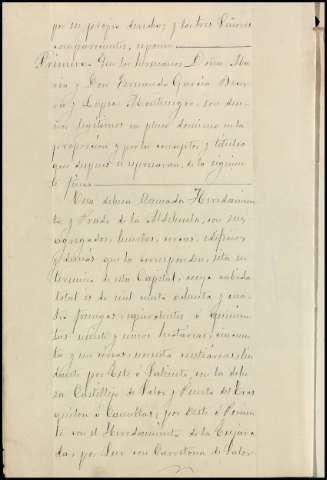 por su propio derecho; y los tres Señores
comparecientes, exponen:
Primero. Que los hermanos Doña Ma-
ría y Don Fernando García Becer-
ra y López Montenegro, son due-
ños legítimos en pleno dominio en la
proporción y por los conceptos y títulos
que después se expresarán, de la siguien-
te finca:
Una dehesa llamada Heredamien-
to y Prado de la Aldehuela, con sus
agregados, huertos, eras, edificios
y demás que la corresponden, sita en
término de esta Capital, cuya cabida
total es de mil ciento ochenta y cua-
tro fanegas equivalentes á quinien-
tas setenta y nueve hectáreas, cincuen-
ta y una áreas, noventa centiáreas; lin-
dante por Este ó Saliente, con la dehe-
sa Castillejo de Salor y Puerto del
ó Canallas; por Oeste ó Ponien-
te con el Heredamiento de la Enjara-
da; por Sur con Carretona de Salor